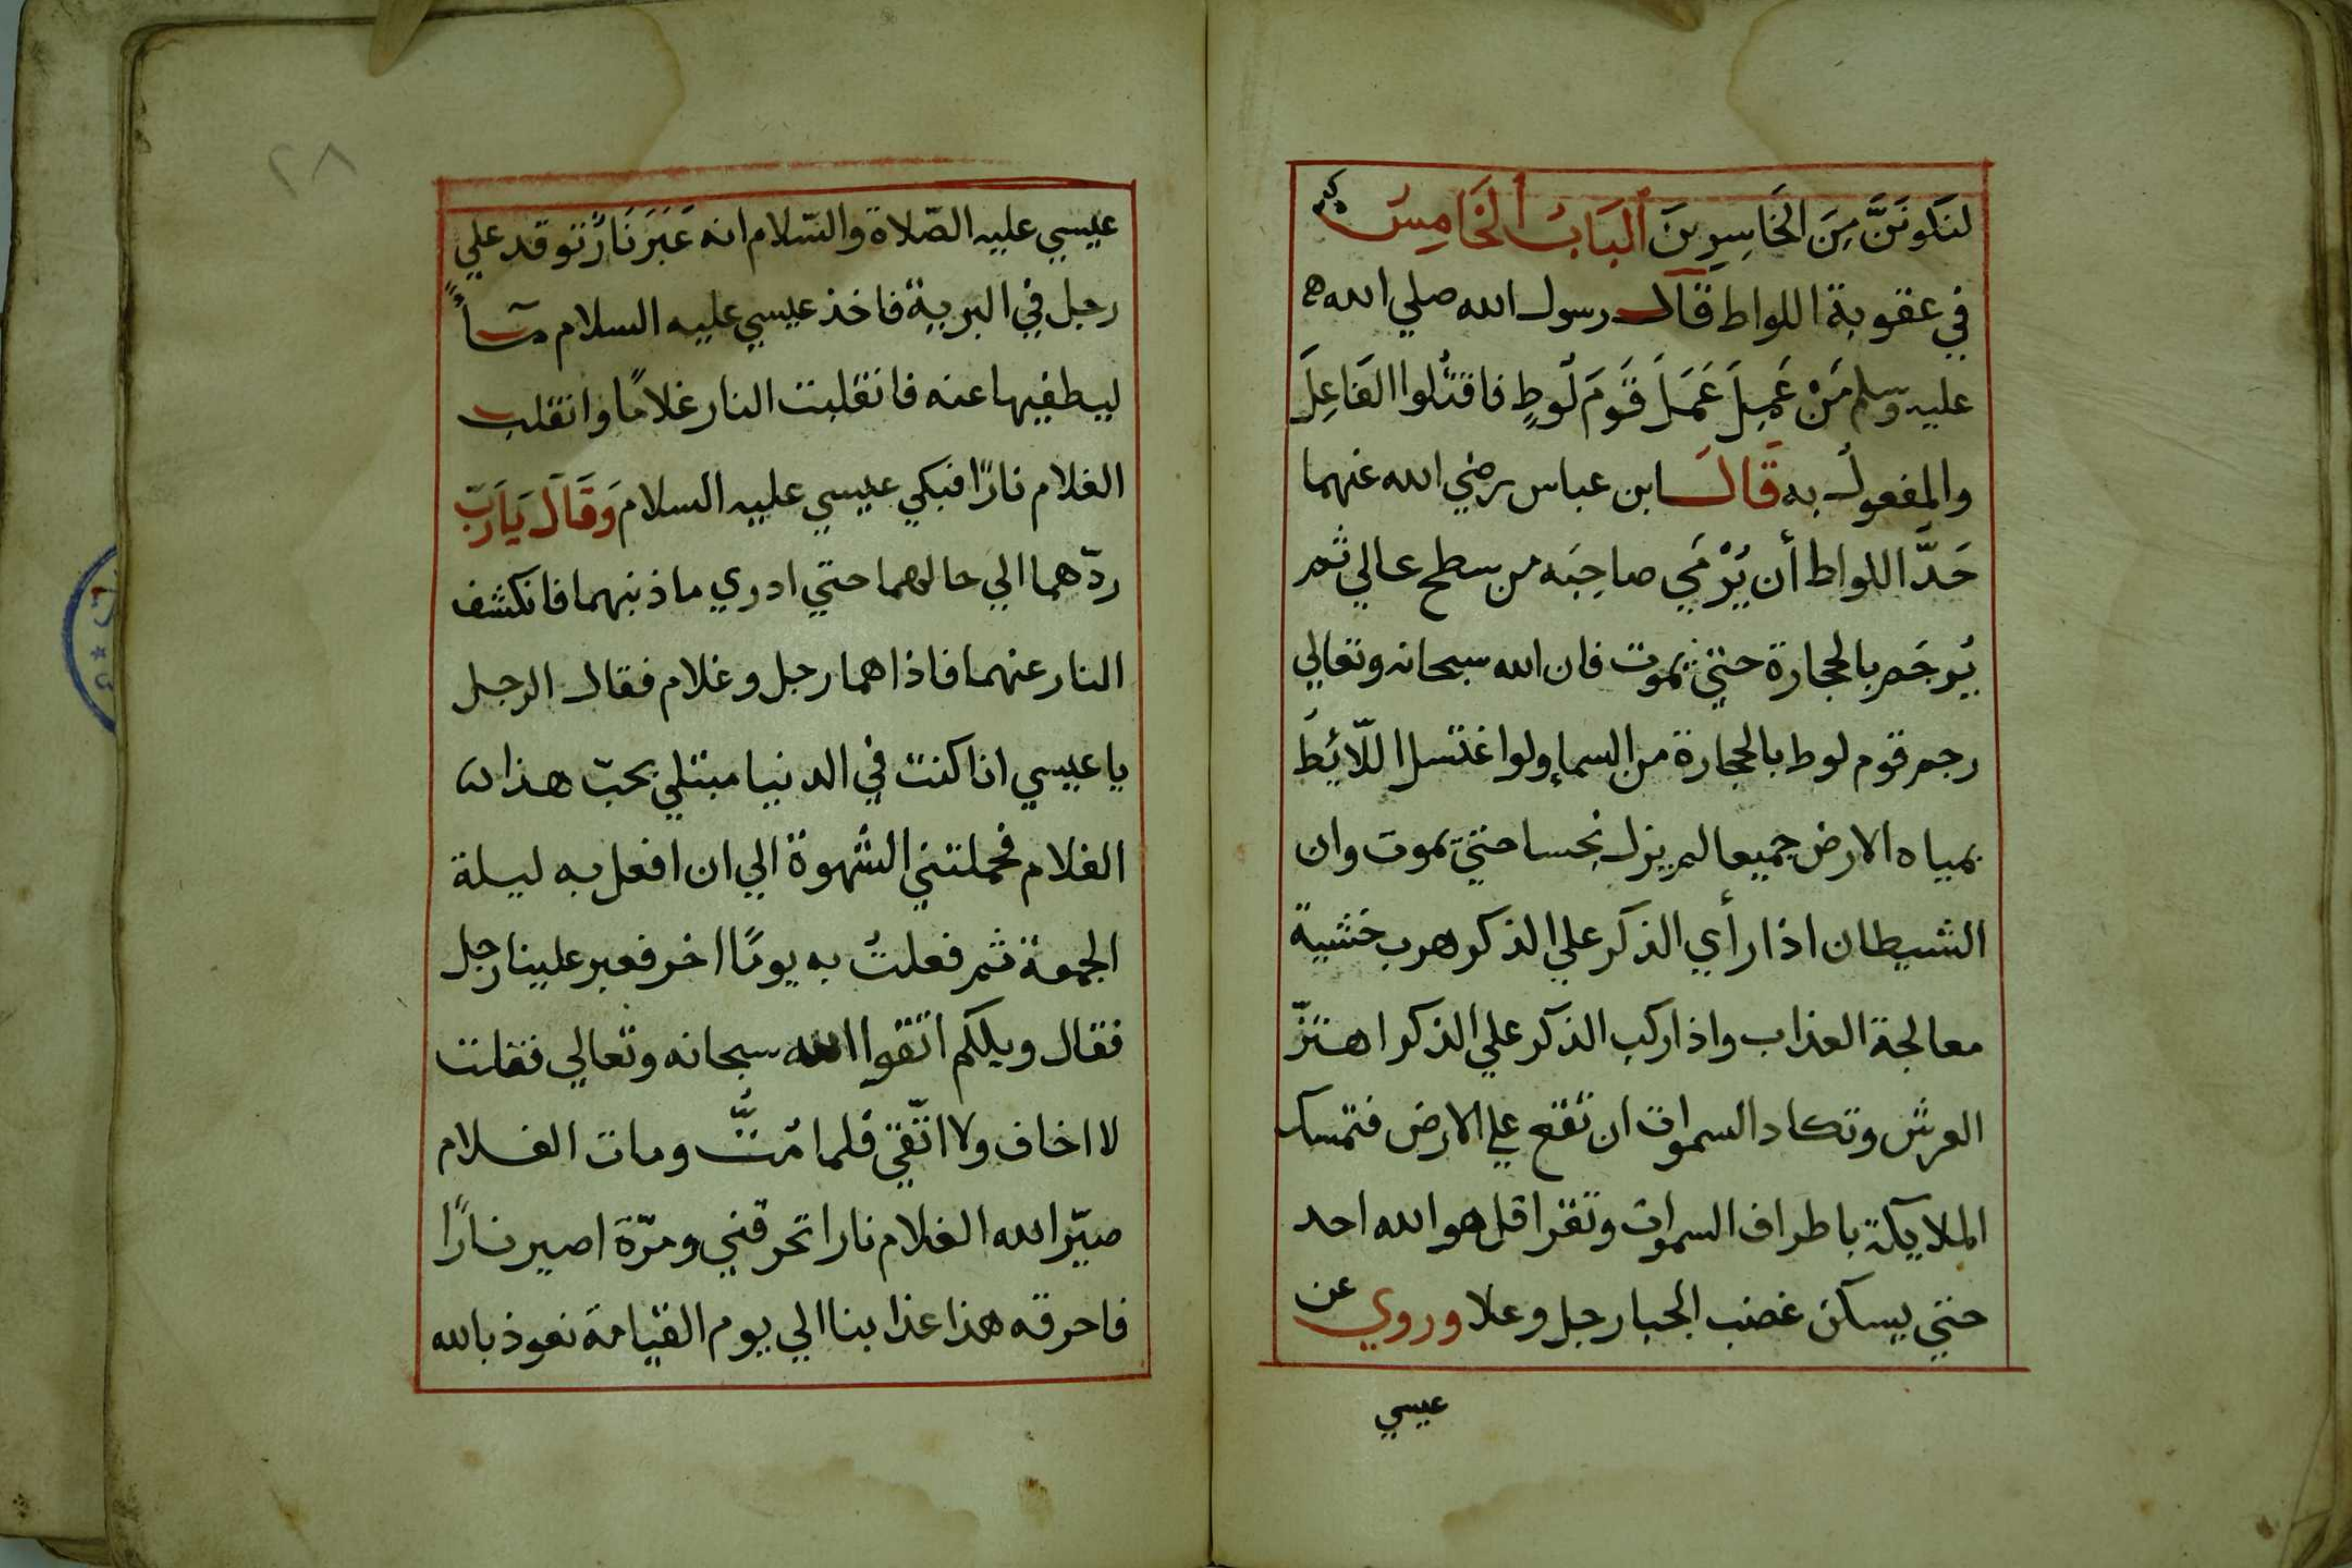 لنكونَنَّ مِنَ الخَاسِرِينَ اَلبَابُ الخَامِسُ
في عقوبة اللواط قَال رسول الله صلي الله ه
عليه وسلم مَنْ عَمِلَ عَمَلَ قَومَ لُوطٍ فاقتُلوا الفَاعِلَ
والمفعولُ به قَالَ ابن عباس رضي الله عنهما
حَدَّ اللواط أن يُرْمَي صاحِبَه من سطح عالي ثم
يُرجَم بالحجارة حتي يموت فان الله سبحانه وتعالي
رجم قوم لوط بالحجارة من السماء ولو اغتسل اللّائِطُ
بمياه الارض جميعا لم يزل نجِسا حتي يموت وان
الشيطان اذا رأي الذكر علي الذكر هرب خشية
معالجة العذاب واذا ركب الذكر علي الذكر اهتزّ
العرش وتكاد السموات ان تقع علي الارض فتمسك
الملايكة باطراف السموات وتقرا قل هو الله احد
حتي يسكن غضب الجبار جل وعلا وروي عن
عيسي
٢٨
عيسي عليه الصّلاة والسّلام انه عَبَرَ نَارٌ توقد علي
رجل في البرية فاخذ عيسي عليه السلام مآءً
ليطفيها عنه فانقلبت النار غلامًا وانقلب
الغلام نارًا فبكي عيسي عليه السلام وَقَالَ يَارَبّ
ردّهما الي حالهما حتي ادري ما ذنبهما فانكشف
النار عنهما فاذا هما رجل وغلام فقال الرجل
يا عيسي انا كنت في الدنيا مبتلي بحبّ هذا
الغلام فحملتني الشهوة الي ان افعل به ليلة
الجمعة ثم فعلتُ به يومًا اخر فعبر علينا رجل
فقال ويلكم اتّقوا الله سبحانه وتعالي فقلت
لا اخاف ولا اتّقي فلما مُتُّ ومات الغلام
صيّر الله الغلام نارا تحرقني ومرّة اصير نارًا
فاحرقه هذا عذابنا الي يوم القيامة نعوذ بالله